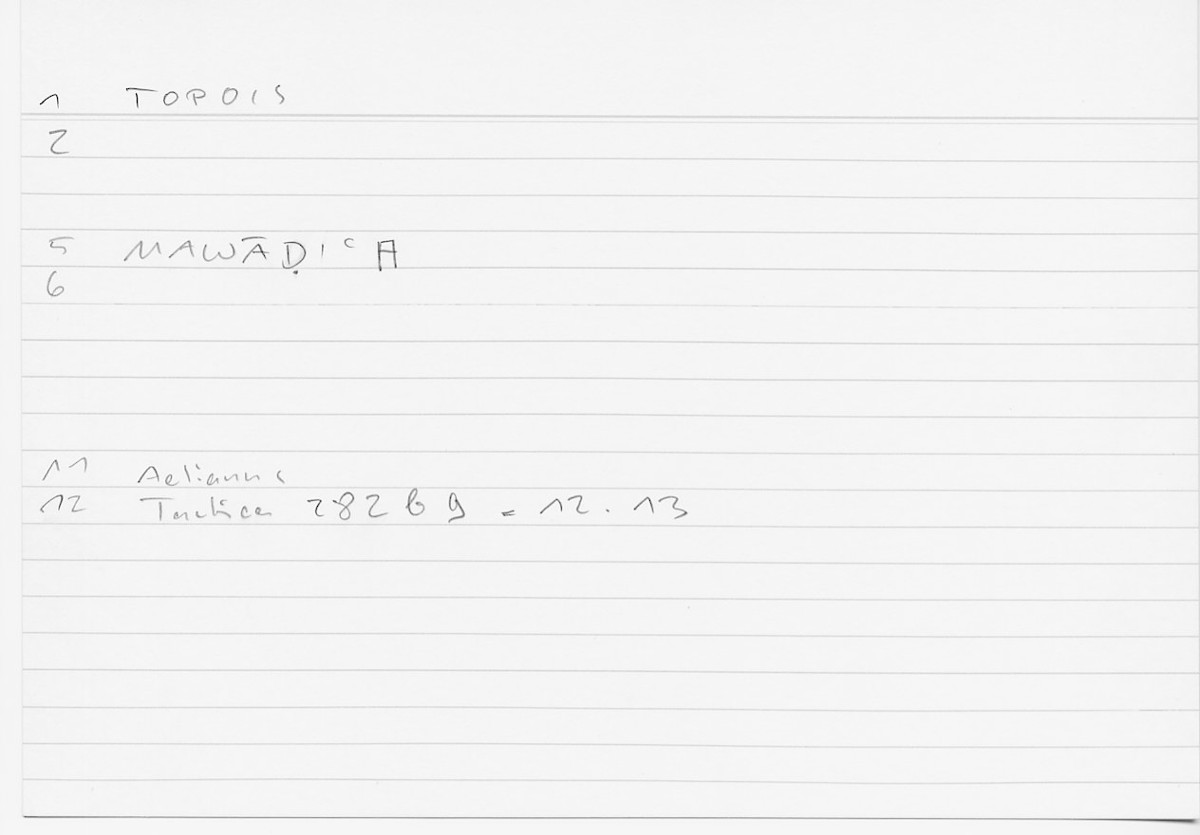 1 TOPOIS
2
5 MAWĀḌIʿA
6
11 Aelianus
12 Tactica 282 b 9 = 12.13